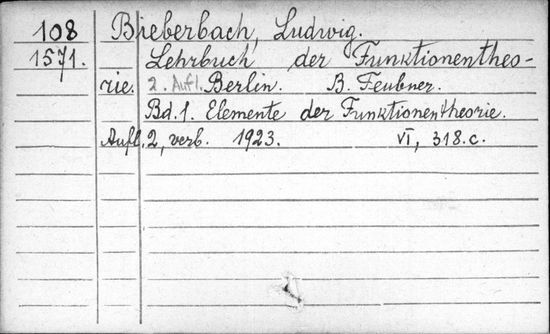 108 Bieberbach, Ludwig.
1571. Lehrbuch der Funktionentheo-
rie. 2. Aufl. Berlin. B. Teubner.
Bd. 1. Elemente der Funktionentheorie.
Aufl. 2, verb. 1923. VI, 318.c.